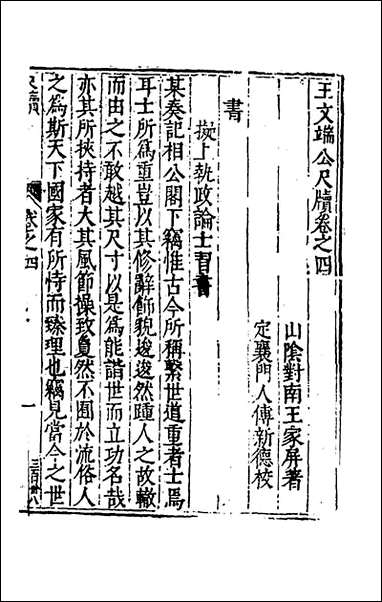 王文端公尺牘卷之四
山陰對南王家屏著
定襄門人傅新德校
書
擬上執政論士習書
某奏記相公閣下竊惟古今所稱繫世道重者士焉
耳士所為重豈以其修辭飾貌逡逡然踵人之故轍
而由之不敢越其尺寸以是為能諧世而立功名哉
亦其所挾持者大其風節操致夐然不囿於流俗人
之為斯天下國家有所恃而臻理也竊見當今之世
尺牘
卷之四
一